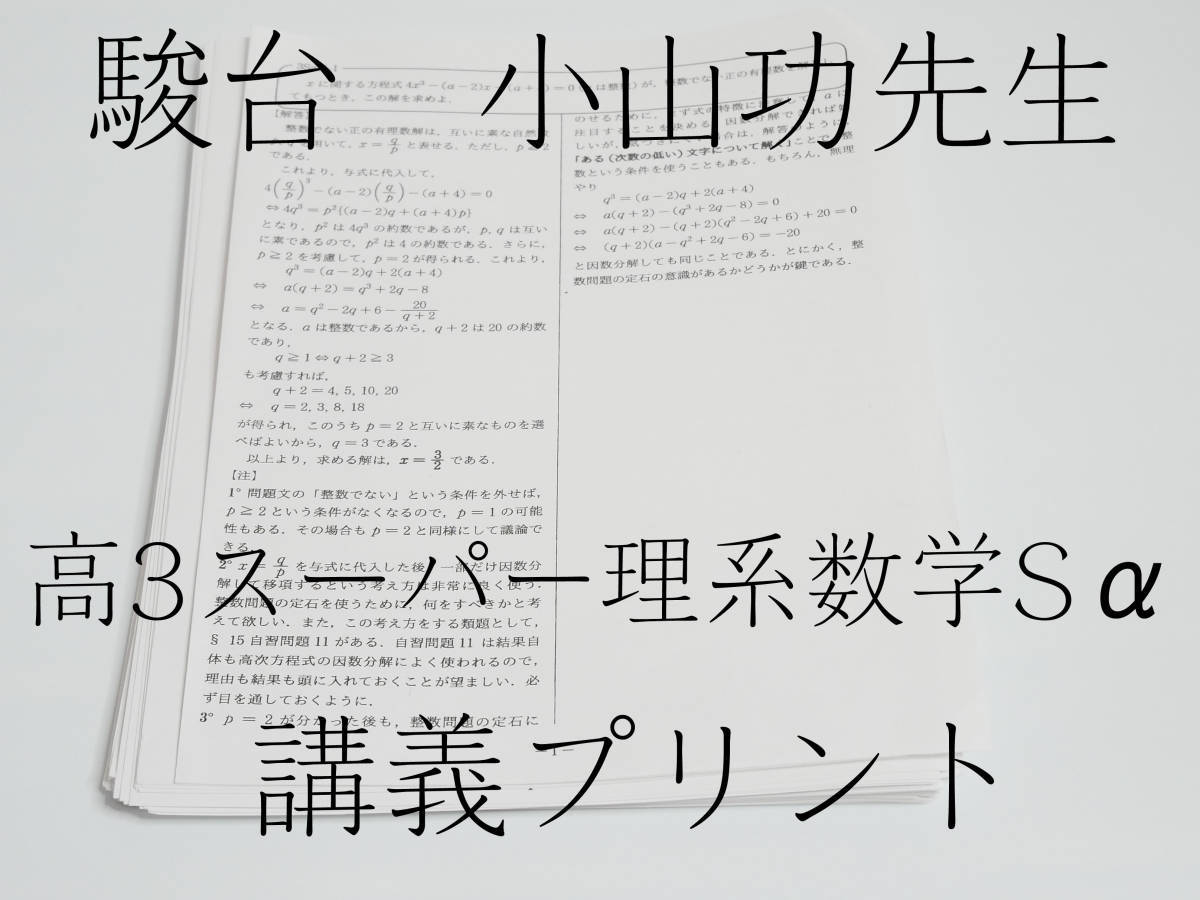 駿台 小山功先生
xに関する方程式4x³−(a−2)x−(a+4)=0
てもつとき，この解を求めよ．
【解答】
整数でない正の有理数解は，互いに素な自然数
を用いて，x = q/p と表せる．ただし，p ≧ 2
である．
これより，与式に代入して，
4(q/p)³−(a−2)(q/p)−(a+4)=0
⇔ 4q³ = p²{(a−2)q+(a+4)p}
となり，p²は4q³の約数であるが，p, qは互い
に素であるので，p²は4の約数である．さらに，
p ≧ 2を考慮して，p = 2が得られる．これより，
q³ = (a−2)q+2(a+4)
⇔ a(q+2) = q³+2q−8
⇔ a = q²−2q+6−20/(q+2)
となる．aは整数であるから，q+2は20の約数
であり，
q ≧ 1 ⇔ q+2 ≧ 3
も考慮すれば，
q+2 = 4, 5, 10, 20
⇔ q = 2, 3, 8, 18
が得られ，このうちp = 2と互いに素なものを選
べばよいから，q = 3である．
以上より，求める解は，x = 3/2 である．
【注】
1° 問題文の「整数でない」という条件を外せば，
p ≧ 2という条件がなくなるので，p = 1の可能
性もある．その場合もp = 2と同様にして議論で
きる．
2° x = q/p を与式に代入した後，一部だけ因数分
解して移項するという考え方は非常に良く使う．
整数問題の定石を使うために，何をすべきかと考
えて欲しい．また，この考え方をする類題として，
§ 15 自習問題11がある．自習問題11は結果自
体も高次方程式の因数分解によく使われるので，
理由も結果も頭に入れておくことが望ましい．必
ず目を通しておくように．
3° p = 2が分かった後も，整数問題の定石に
のせるために，まず式の特徴に注意して，aに
注目することを決める．因数分解できれば
しいが，
「ある（次数の低い）文字について解く」ことで，整
数という条件を使うこともある．もちろん，無理
やり
q³ = (a−2)q+2(a+4)
⇔ a(q+2)−(q³+2q−8) = 0
⇔ a(q+2)−(q+2)(q²−2q+6)+20 = 0
⇔ (q+2)(a−q²+2q−6) = −20
と因数分解しても同じことである．とにかく，整
数問題の定石の意識があるかどうかが鍵である．
−1−
高3スーパー理系数学Sα
講義プリント